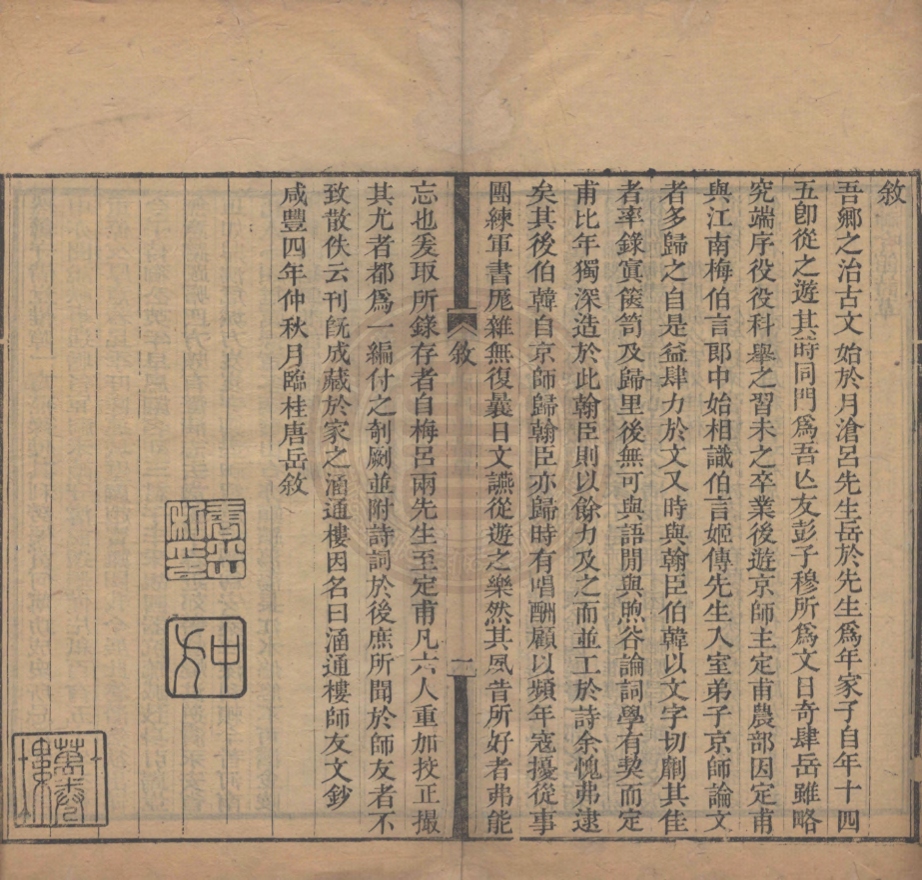 敘
吾鄉之治古文始於月滄呂先生岳於先生爲年家子自年十四
五卽從之遊其時同門爲吾亾友彭子穆所爲文日奇肆岳雖略
究端序役役科舉之習未之卒業後遊京師主定甫農部因定甫
與江南梅伯言郎中始相識伯言姬傳先生入室弟子京師論文
者多歸之自是益肆力於文又時與翰臣伯韓以文字切劘其佳
者率錄寘篋笥及歸里後無可與語閒與煦谷論詞學有契而定
甫比年獨深造於此翰臣則以餘力及之而並工於詩余愧弗逮
矣其後伯韓自京師歸翰臣亦歸時有唱酬顧以頻年寇擾從事
團練軍書厖雜無復曩日文讌從遊之樂然其夙昔所好者弗能
敘
一
忘也爰取所錄存者自梅呂兩先生至定甫凡六人重加挍正撮
其尤者都爲一編付之剞劂並附詩詞於後庶所聞於師友者不
致散佚云刊旣成藏於家之涵通樓因名曰涵通樓師友文鈔
咸豐四年仲秋月臨桂唐岳敘